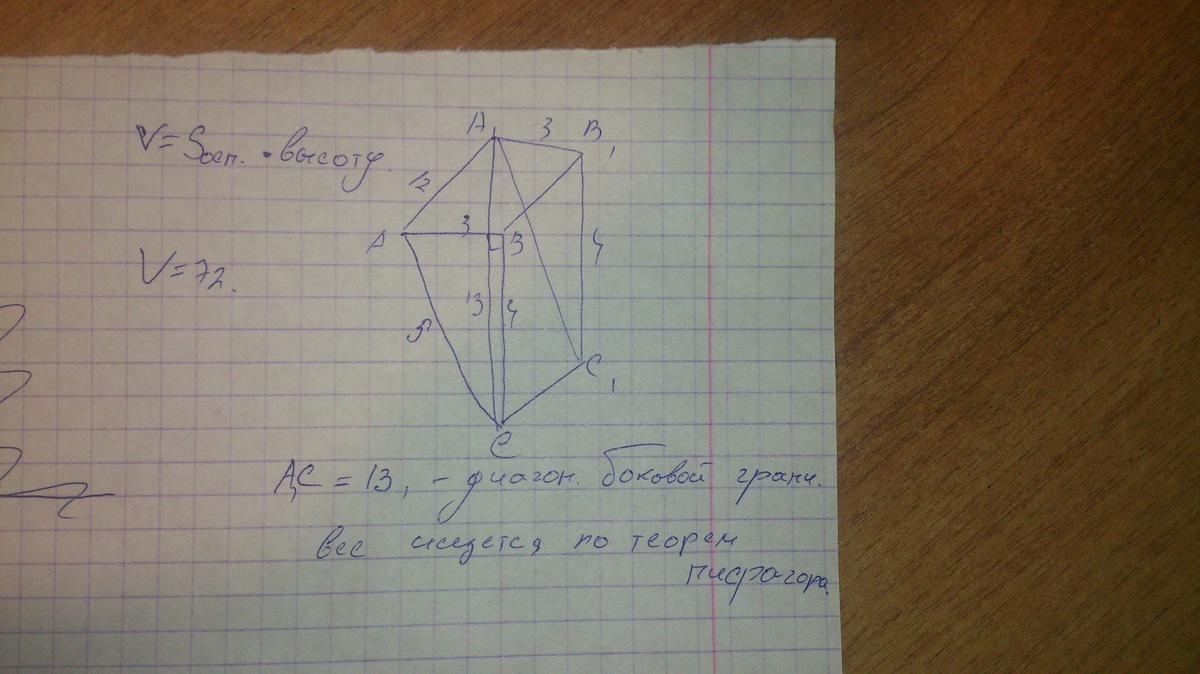 V = Sосн. · высоту.
A₁ 3 B₁
12
A 3 B
4
13 4
5
C₁
C
V = 72.
A₁C = 13, – диагон. боковой грани.
все ищется по теорем
пифагора.